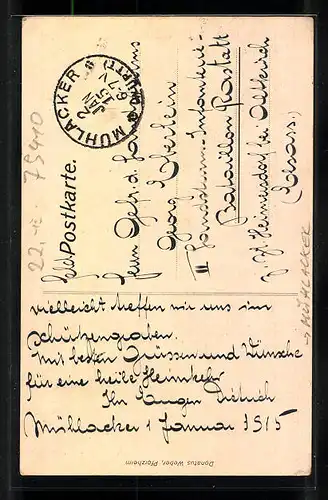 Feldpostkarte.
MÜHLACKER
2
JAN
15
6-7 V
Herrn Gefr. d. Landsturms
Georg Eberlein
III Landsturm-Infanterie-
Bataillon Rastatt
z. Zt. Heimersdorf bei Altkirch
(Elsass.)
vielleicht treffen wir uns im
Schützengraben.
Mit besten Grüssen und Wünsche
für eine heile Heimkehr
Ihr Eugen Dietrich
Mühlacker 1 Januar 1915
Donatus Weber, Pforzheim
→ MÜHLACKER